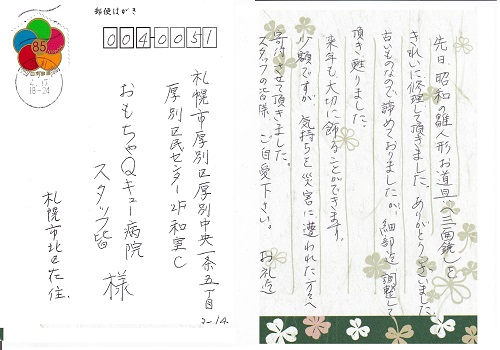 郵便はがき
004-0051
85
18-24
札幌市厚別区厚別中央一条五丁目
3-14
厚別区民センター2F和室C
おもちゃQキュー病院
スタッフ皆様
札幌市北区在住
先日、昭和の雛人形お道具(三面鏡)を
きれいに修理して頂きました。ありがとうございました。
古いものなので諦めておりましたが、細部迄調整して
頂き甦りました。
来年も、大切に飾ることができます。
少額ですが、気持ちを災害に遭われた方々へ
寄付させて頂きました。
スタッフの皆様 ご自愛下さい。 お礼迄